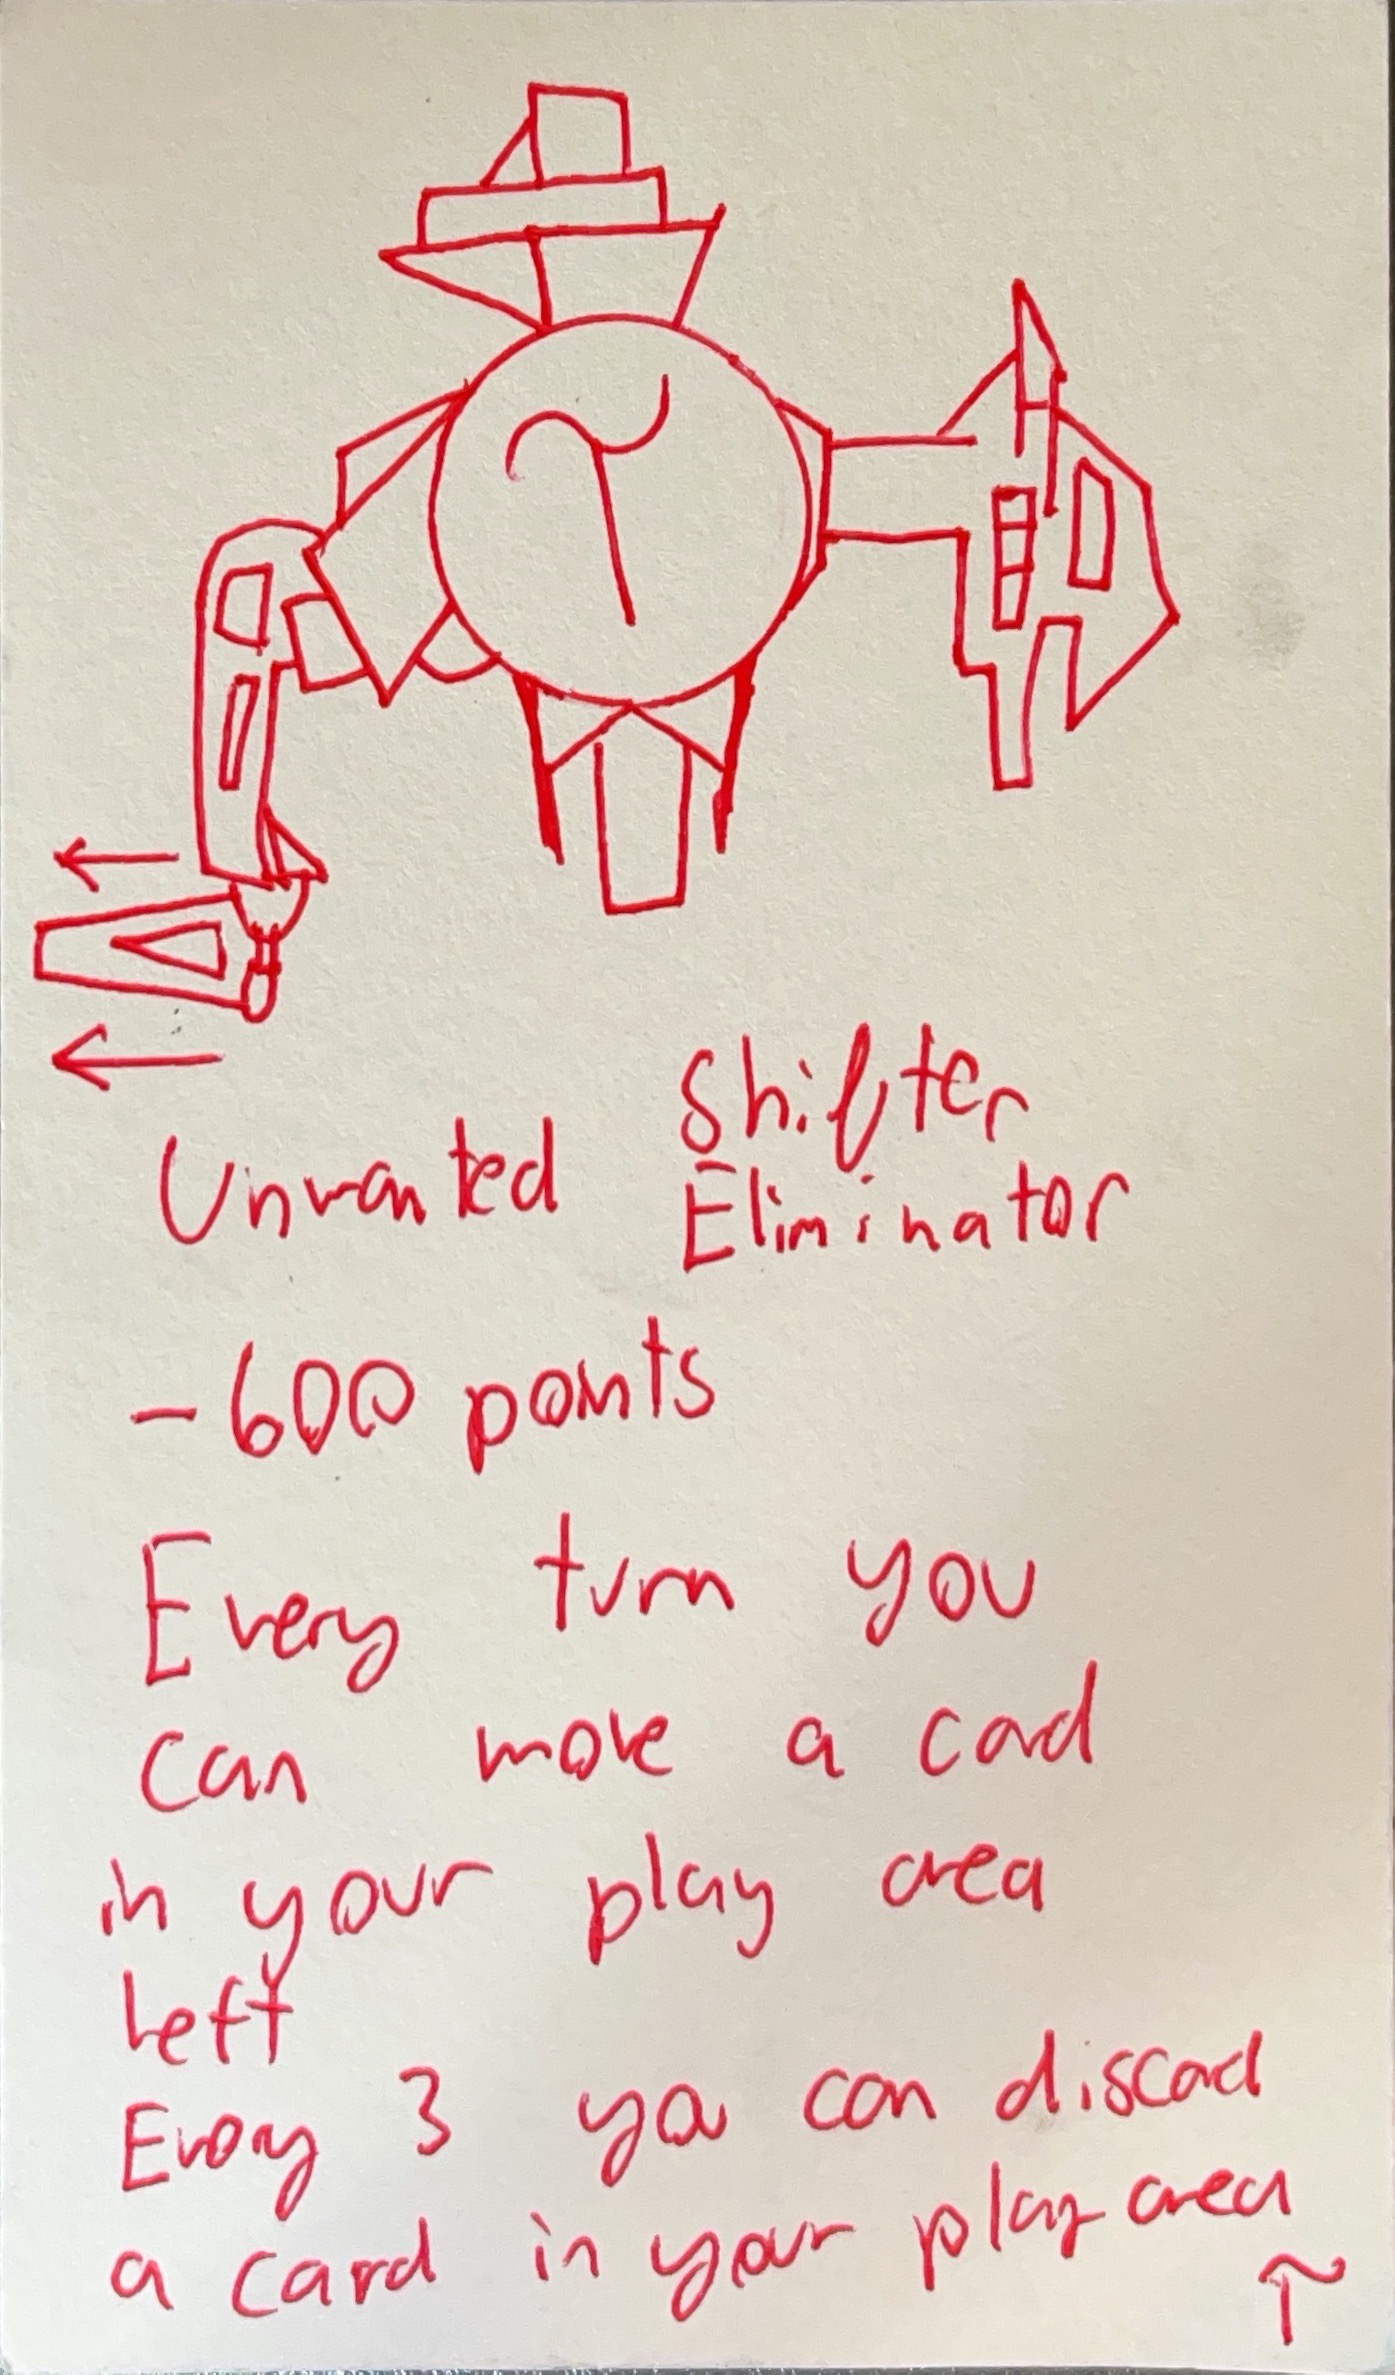 Unwanted Shifter
Eliminator
-600 points
Every turn you
can move a card
in your play area
Left
Every 3 you can discard
a card in your play area